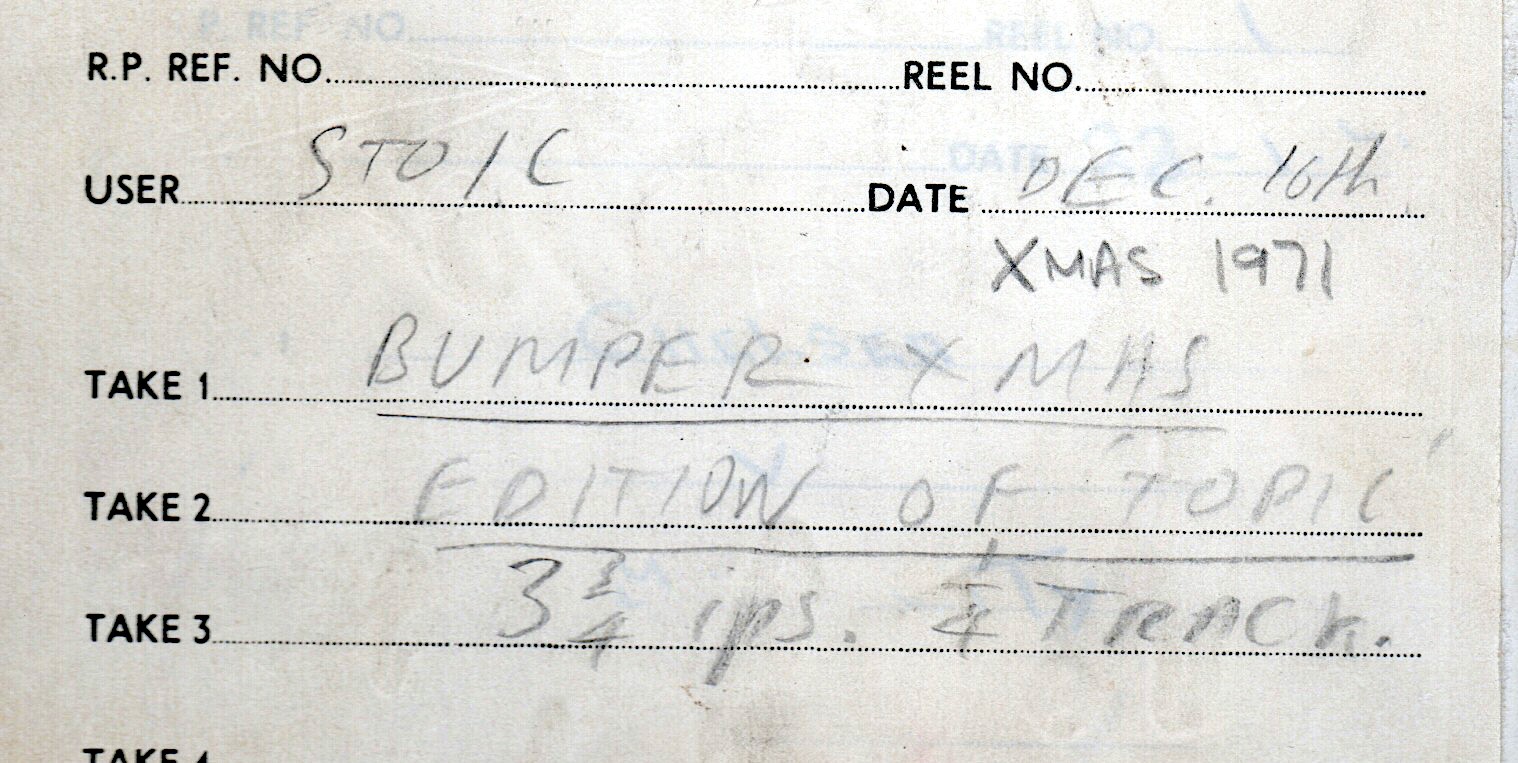 R.P. REF. NO. REEL NO.
USER STOIC DATE DEC. 16th
XMAS 1971
TAKE 1 BUMPER XMAS
TAKE 2 EDITION OF 'TOPIC'
TAKE 3 3 3/4 ips. 1/4 Track.
TAKE 4